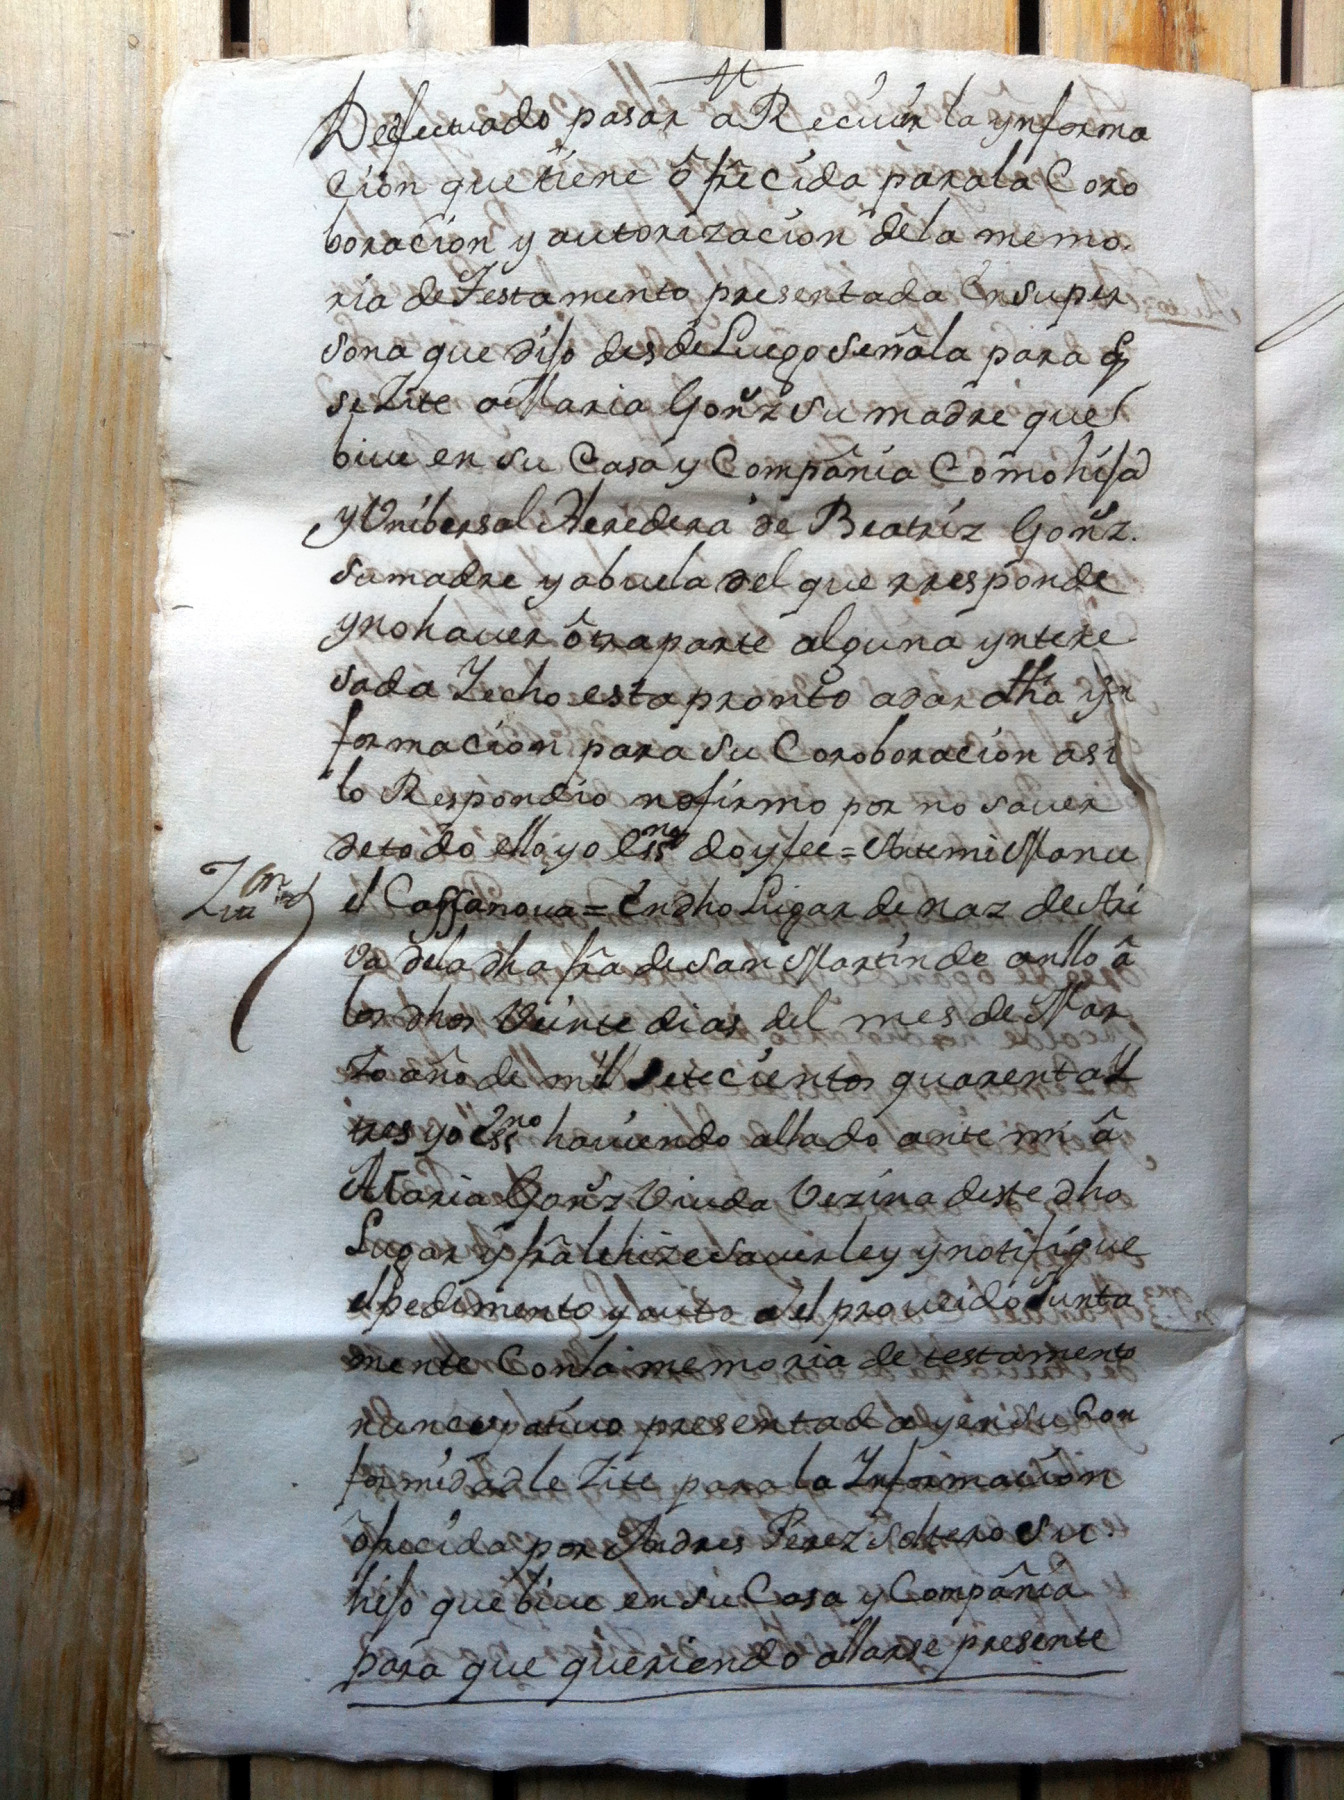 Defectuado pasar a Recivir la ynforma
cion que tiene ôfrecida para la Coro
boracion y autorizacion de la memo.
ria de Testamento presentada En su per
sona que diso desde Luego señala para q
se Zite a Maria Gonz su madre que
bive en su Casa y Compañia Como hisa
y Vnibersal Heredera de Beatriz Gonz.
su madre y abuela del que rresponde
y no haver ôtra parte alguna yntere
sada Zecho esta pronto a dar dha yn
formacion para su Coroboracion asi
lo Respondio no firmo por no saver
de todo ello yo Essno doy fee = Ante mi Manu
el Cassanova = En dho Lugar de naz de Arri
Zitn
va de la dha fra de San Martin de anllo â
los dhos Veinte dias del mes de Mar
zo año de mill setecientos quarenta y
tres yo Essno haviendo allado ante mi â
Maria Gonz Viuda Vezina deste dho
Lugar y fra le hize saver ley y notifique
el pedimento y auto a el proveido Junta
mente Con la memoria de testamento
nuncupativo presentada y en su Con
formidad le Zite para la Informacion
ôfrecida por Andres Perez soltero su
hiso que bive en su Casa y Compañia
para que queriendo allarse presente